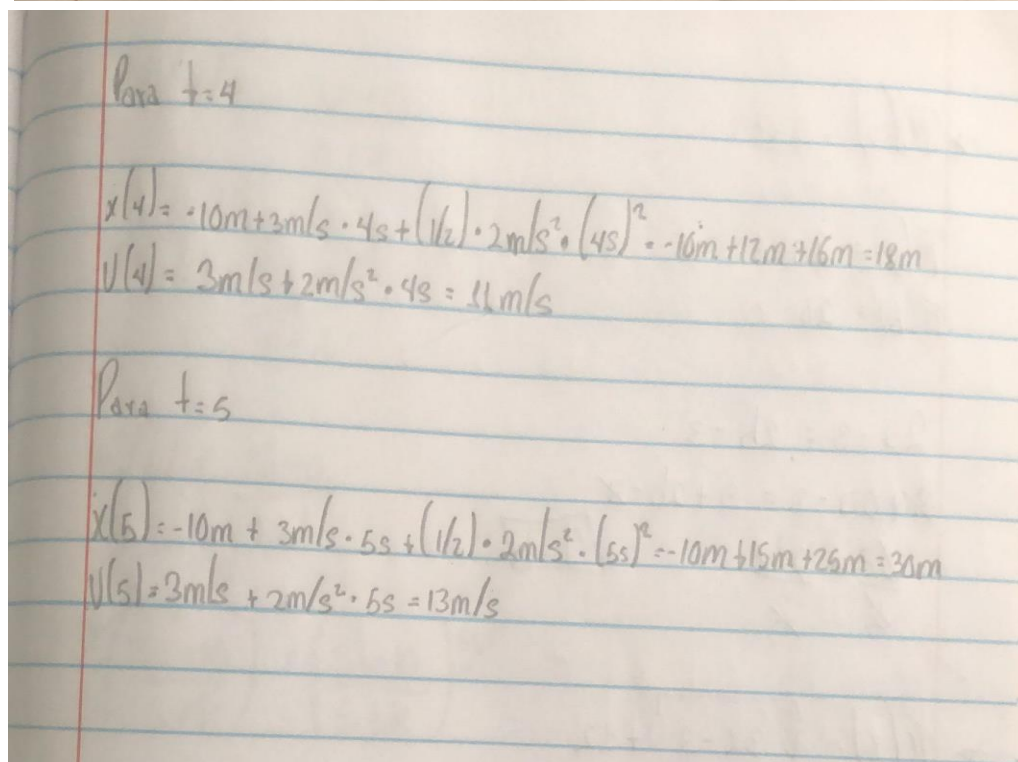 Para t=4
x(4)= -10m+3m/s · 4s+(1/2) · 2m/s² · (4s)² = -10m +12m +16m =18m
V(4)= 3m/s+2m/s² · 4s = 11m/s
Para t=5
x(5)=-10m + 3m/s · 5s +(1/2) · 2m/s² · (5s)² =-10m +15m +25m =30m
V(5)=3m/s + 2m/s² · 5s =13m/s